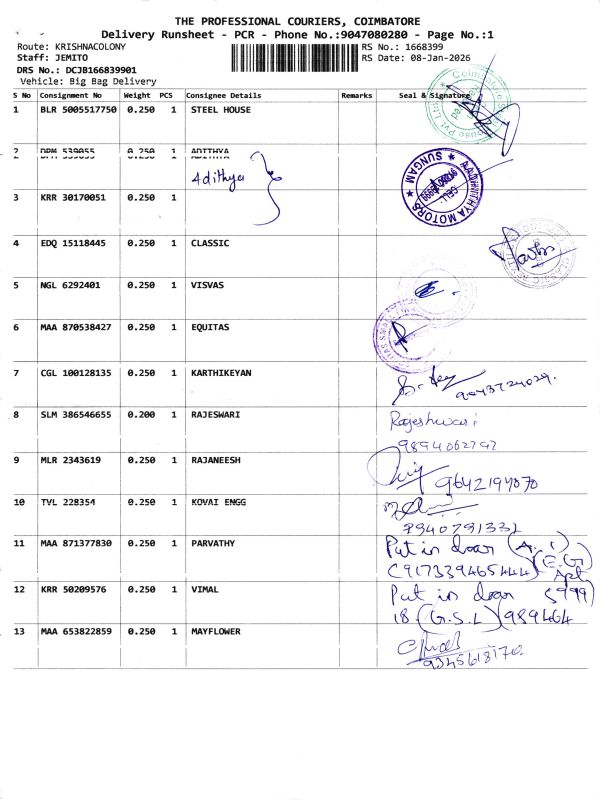 THE PROFESSIONAL COURIERS, COIMBATORE
Delivery Runsheet - PCR - Phone No.:9047080280 - Page No.:1
Route: KRISHNACOLONY RS No.: 1668399
Staff: JEMITO RS Date: 08-Jan-2026
DRS No.: DCJB166839901
Vehicle: Big Bag Delivery
S No Consignment No Weight PCS Consignee Details Remarks Seal & Signature
1 BLR 5005517750 0.250 1 STEEL HOUSE
2 DPM 539055 0.250 1 ADITHYA
Adithya
AADHITHYA MOTORS ★ SUNGAM ★
3 KRR 30170051 0.250 1
4 EDQ 15118445 0.250 1 CLASSIC
5 NGL 6292401 0.250 1 VISVAS
6 MAA 870538427 0.250 1 EQUITAS
7 CGL 100128135 0.250 1 KARTHIKEYAN
8 SLM 386546655 0.200 1 RAJESWARI
Rajeshwari
9894062797
9 MLR 2343619 0.250 1 RAJANEESH
9642194070
10 TVL 228354 0.250 1 KOVAI ENGG
9940791331
11 MAA 871377830 0.250 1 PARVATHY
Put in door (A.1)
(917339465444) (E.G) Apt
12 KRR 50209576 0.250 1 VIMAL
Put in door 5999)
18 (G.S.L) (989464
13 MAA 653822859 0.250 1 MAYFLOWER